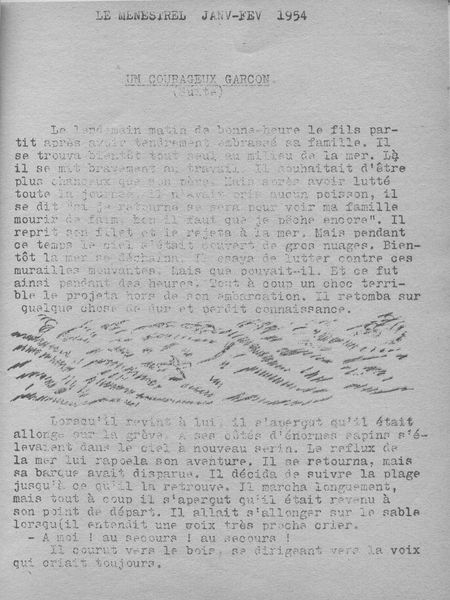 LE MENESTREL JANV-FEV 1954
UN COURAGEUX GARCON
(Suite)
Le lendemain matin de bonne-heure le fils par-
tit après avoir tendrement embrassé sa famille. Il
se trouva bientôt tout seul au milieu de la mer. Là
il se mit bravement au travail. Il souhaitait d'être
plus chanceux que son père. Mais après avoir lutté
toute la journée, il n'avait pris aucun poisson, il
se dit "si je retourne se sera pour voir ma famille
mourir de faim. Non il faut que je pêche encore". Il
reprit son filet et le rejeta à la mer. Mais pendant
ce temps le ciel s'était couvert de gros nuages. Bien-
tôt la mer se déchaîna. Il essaya de lutter contre ces
murailles mouvantes. Mais que pouvait-il. Et ce fut
ainsi pendant des heures. Tout à coup un choc terri-
ble le projeta hors de son embarcation. Il retomba sur
quelque chose de dur et perdit connaissance.
Lorsqu'il revint à lui, il s'aperçut qu'il était
allongé sur la grève. A ses côtés d'énormes sapins s'é-
levaient dans le ciel à nouveau serin. Le reflux de
la mer lui rappela son aventure. Il se retourna, mais
sa barque avait disparue. Il décida de suivre la plage
jusqu'à ce qu'il la retrouve. Il marcha longuement,
mais tout à coup il s'aperçut qu'il était revenu à
son point de départ. Il allait s'allonger sur le sable
lorsqu(il entendit une woix très proche crier.
- A moi ! au secours ! au secours !
Il courut vers le bois, se dirigeant vers la voix
qui criait toujours.